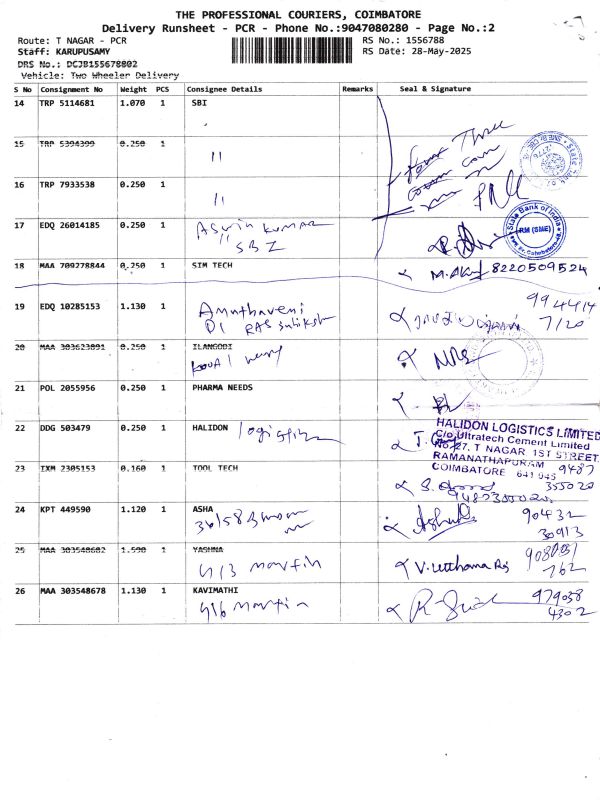 THE PROFESSIONAL COURIERS, COIMBATORE
Delivery Runsheet - PCR - Phone No.:9047080280 - Page No.:2
Route: T NAGAR - PCR RS No.: 1556788
Staff: KARUPUSAMY RS Date: 28-May-2025
DRS No.: DCJB155678802
Vehicle: Two Wheeler Delivery
S No Consignment No Weight PCS Consignee Details Remarks Seal & Signature
14 TRP 5114681 1.070 1 SBI
15 TRP 5394399 0.250 1
11
Three
16 TRP 7933538 0.250 1
11
17 EDQ 26014185 0.250 1 Aswin Kumar
11 SBI
State Bank of India
RM (SME)
18 MAA 709278844 0.250 1 SIM TECH 8220509524
19 EDQ 10285153 1.130 1 Amuthaveni
D1 RAS
994414
7120
20 MAA 303623091 0.250 1 ILANGODI
21 POL 2055956 0.250 1 PHARMA NEEDS
22 DDG 503479 0.250 1 HALIDON logistics
HALIDON LOGISTICS LIMITED
C/o.Ultratech Cement Limited
No.27, T NAGAR 1ST STREET,
RAMANATHAPURAM
COIMBATORE 641 045
23 IXM 2305153 0.160 1 TOOL TECH
9487
355020
9487355020
24 KPT 449590 1.120 1 ASHA
90432
30913
25 MAA 303548602 1.590 1 YASHNA
413 martin
V. Utthama Raj
26 MAA 303548678 1.130 1 KAVIMATHI
416 martin
979038
4302